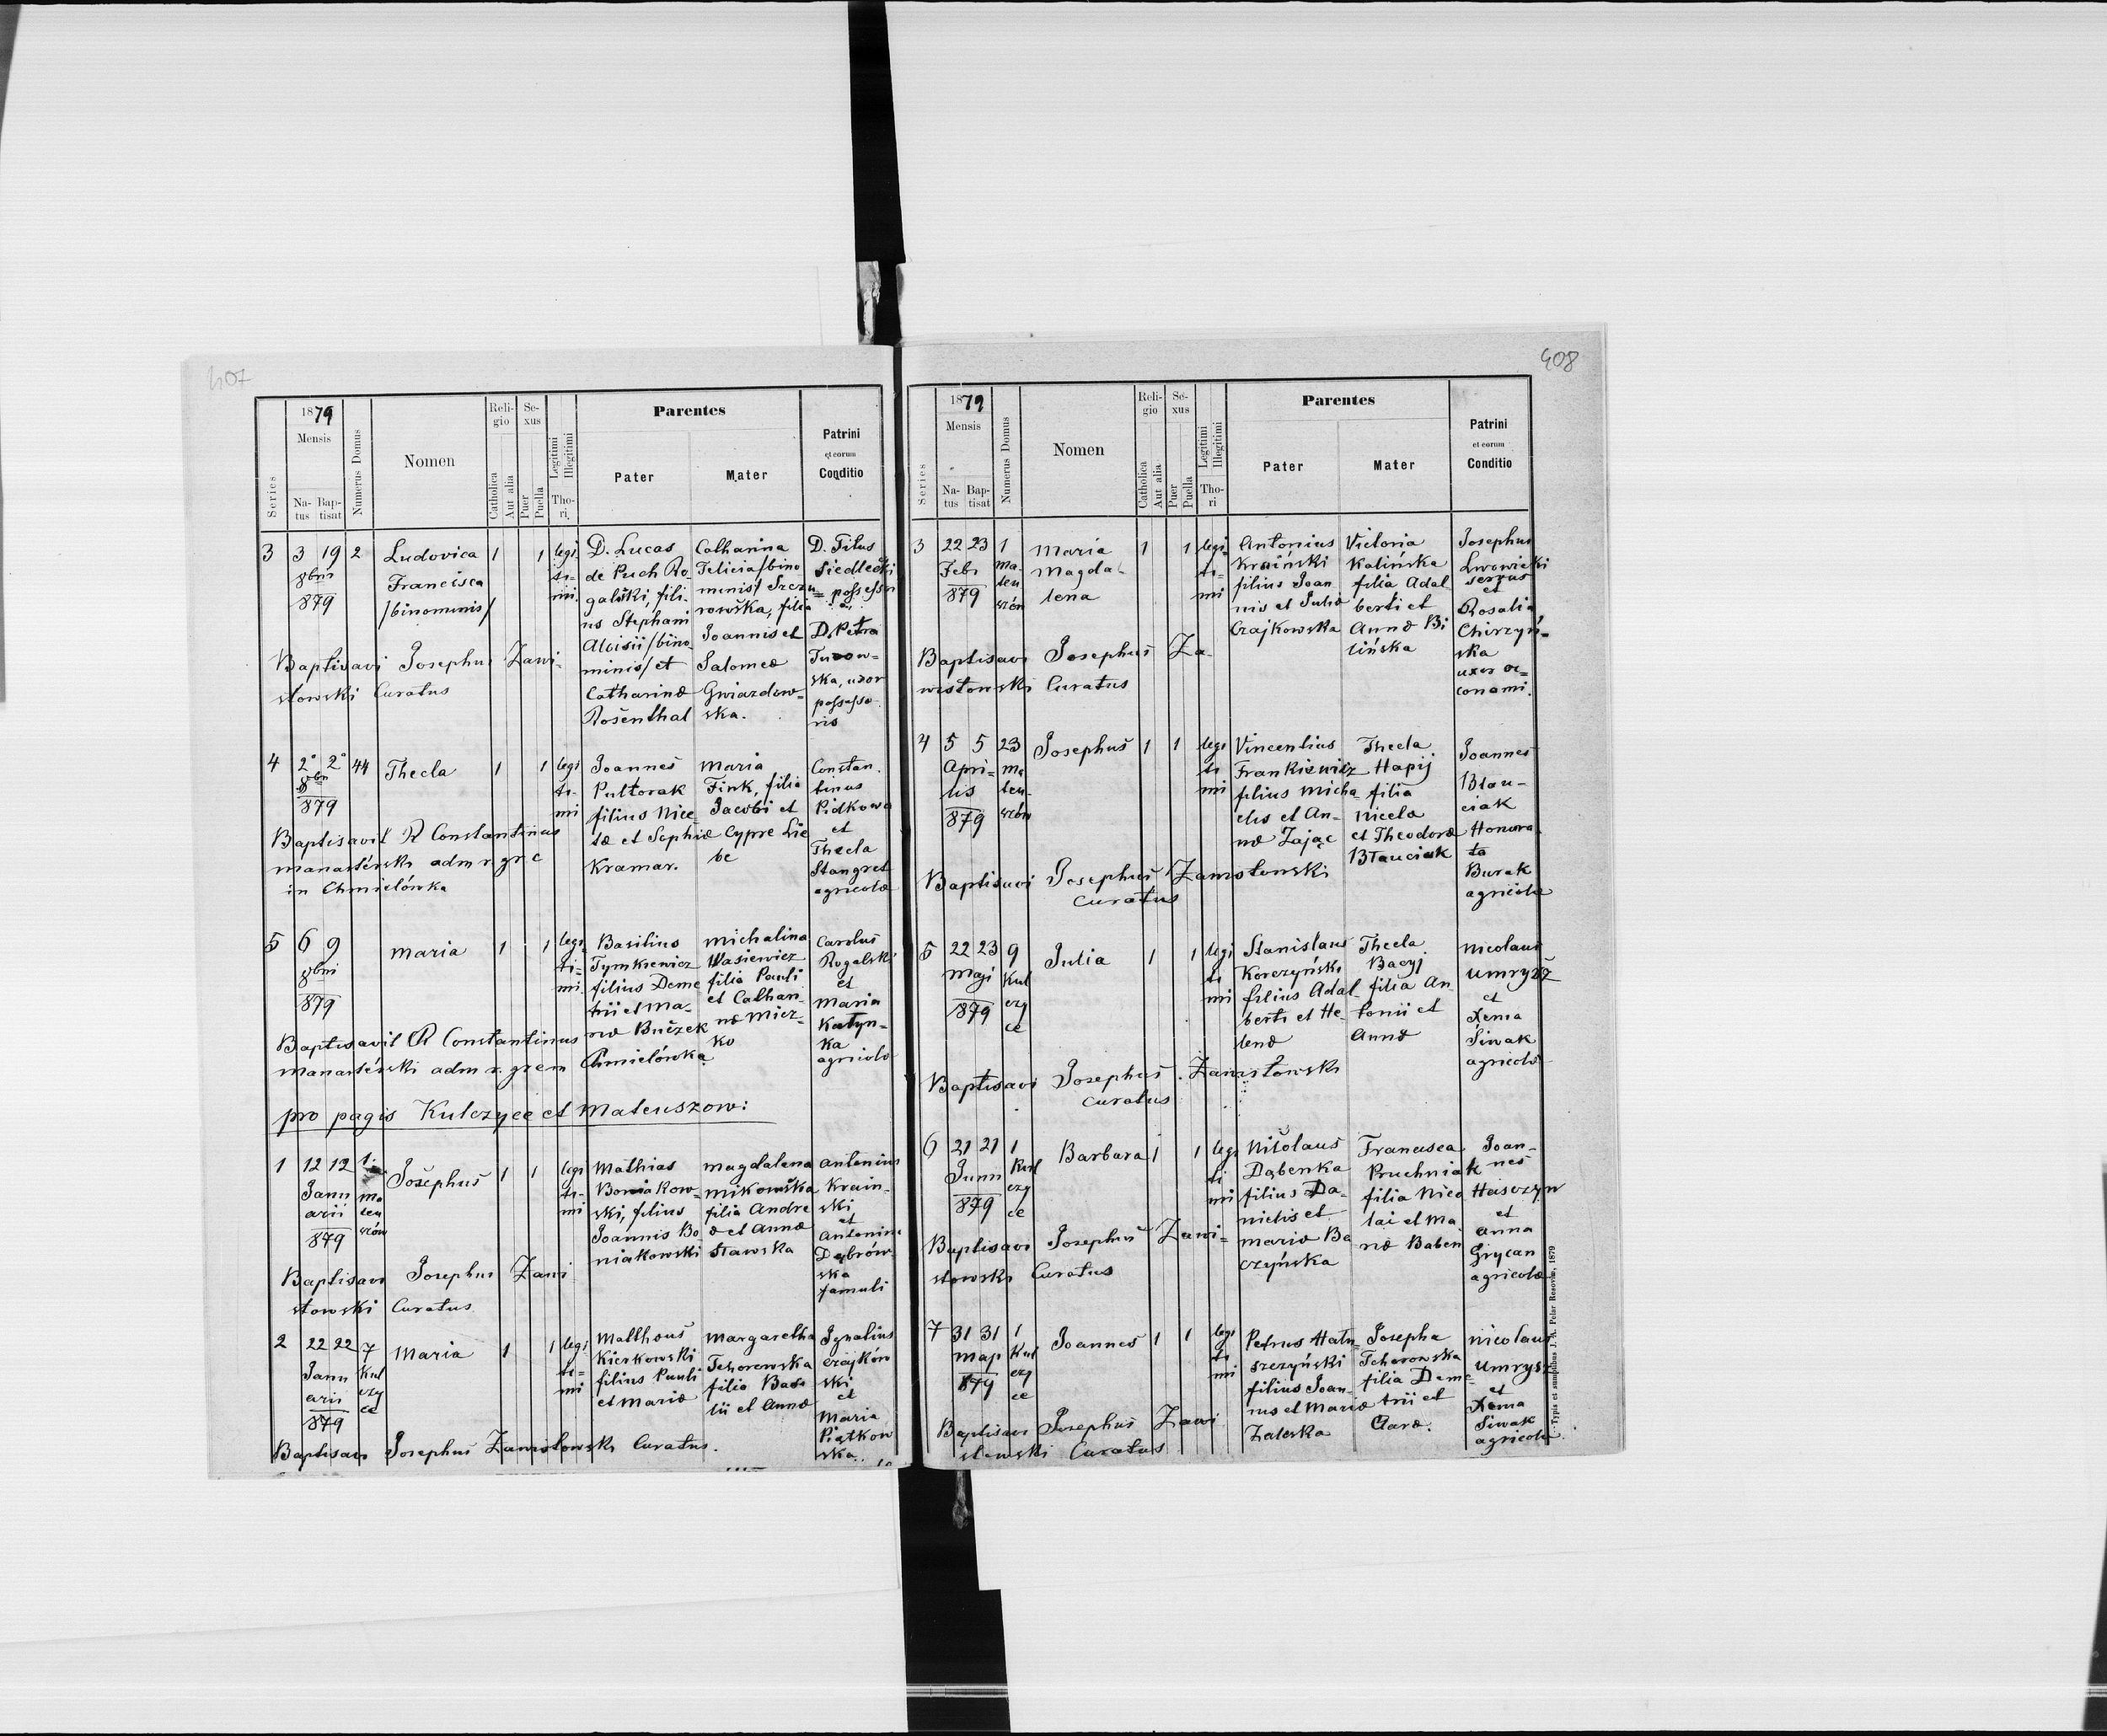 407
Series
1879
Mensis
Na- Bap-
tus tisat
Numerus Domus
Nomen
Reli-
gio
Catholica
Aut alia
Se-
xus
Puer
Puella
Legitimi
Illegitimi
Tho-
ri
Parentes
Pater
Mater
Patrini
et eorum
Conditio
3
3 19
8bris
879
2
Ludovica
Francisca
/binominis/
1
1
legi-
ti-
mi.
D. Lucas
de Puch Ro-
galski, fili-
us Stephani
Aloisii/bino
minis/ et
Catharinæ
Rosenthal
Catharina
Felicia/bino
minis/ Szczu=
rowska, filia
Joannis et
Salomeæ
Gwiazdow-
ska.
D. Titus
Siedlecki
possessor
D. Petra
ska, uxor
possesso
ris
Baptisavi Josephus Zawi-
stowski Curatus
4
2 2
8bri
879
44
Thecla
1
1
legi
ti-
mi
Joannes
Pułtorak
filius Nice-
tæ et Sophiæ
Kramar.
Maria
Fink, filia
Jacobi et
Cypre Lie
be
Constan-
tinus
Pidkowa
et
Thecla
Stangret
agricolæ
Baptisavit R Constantinus
manasterski adm r. gr. c
in Chmielówka
5
6 9
8bri
879
Maria
1
1
legi-
ti-
mi.
Basilius
Tymkiewicz
filius Deme
trii et Ma-
riæ Buczek
Michalina
Wasiewicz
filia Pauli
et Cathari-
næ Micz-
ko
Carolus
Rogalski
et
Maria
Katyn-
ka
agricolæ
Baptisavit R Constantinus
manasterski adm r. gr. em Chmielówka
pro pagis Kulczyce et Mateuszow:
1
12 12
Janu
arii
879
1
ma
teu
szów
Josephus
1
1
legi
ti-
mi
Mathias
Boniakow-
ski, filius
Joannis Bo
niakowski
Magdalena
Mikowska
filia Andre
æ et Annæ
Stawska
Antonius
Krain-
ski
et
Antonina
Dąbrów-
ska
famuli
Baptisavi Josephus Zawi
stowski Curatus
2
22 22
Janu
arii
879
7
Kul
czy
ce
Maria
1
1
legi
ti-
mi
Mattheus
Kierkowski
filius Pauli
et Mariæ
Margaretha
Tchorewska
filia Basi
lii et Annæ
Ignatius
Czajkow
ski
et
Maria
Piątkow
ska
Baptisavi Josephus Zawistowski Curatus.
408
Series
1879
Mensis
Na- Bap-
tus tisat
Numerus Domus
Nomen
Reli-
gio
Catholica
Aut alia
Se-
xus
Puer
Puella
Legitimi
Illegitimi
Tho-
ri
Parentes
Pater
Mater
Patrini
et eorum
Conditio
3
22 23
Febr
879
1
Ma-
teu
szów
Maria
Magda-
lena
1
1
legi-
ti-
mi
Antonius
Kraiński
filius Joan
nis et Juliæ
Czajkowska
Victoria
Kalińska
filia Adal
berti et
Annæ Bi
lińska
Josephus
Lwowicki
servus
et
Rosalia
Chirzyń-
ska
uxor œ-
conomi.
Baptisavi Josephus Za-
wistowski Curatus
4
5 5
Apri-
lis
879
23
Ma
teu-
szów
Josephus
1
1
legi
ti
mi
Vincentius
Frankiewicz
filius Micha-
elis et An-
næ Zając
Thecla
Hapij
filia
Nicela
et Theodoræ
Błauciak
Joannes
Błau-
ciak
Honora-
ta
Burak
agricolæ
Baptisavi Josephus Zawistowski
Curatus
5
22 23
Maji
879
9
Kul
czy
ce
Julia
1
1
legi
ti
mi
Stanislaus
Korczyński
filius Adal-
berti et He-
lenæ
Thecla
Bacyj
filia An-
tonii et
Annæ
Nicolaus
Umrysz
et
Xenia
Siwak
agricolæ
Baptisavi Josephus Zawistowski
Curatus
6
21 21
Junii
879
1
Kul
czy
ce
Barbara
1
1
legi
ti
mi
Nicolaus
Dąbenka
filius Da-
nielis et
Mariæ Ba
czyńska
Francisca
Pruchniak
filia Nico
lai et Ma
riæ Baben
Joan-
nes
Hasczyn
et
Anna
Grycan
agricolæ
Baptisavi Josephus Zawi-
stowski Curatus
7
31 31
Maji
879
1
Kul
czy
ce
Joannes
1
1
legi
ti
mi
Petrus Hatu
szczyński
filius Joan-
nis et Mariæ
Zaleska
Josepha
Tchorowska
filia Deme
trii et
Claræ.
Nicolaus
Umrysz
et
Xenia
Siwak
agricolæ
Baptisavi Josephus Zawi
stowski Curatus
Typis et sumptibus J. A. Pelar Resoviæ, 1879